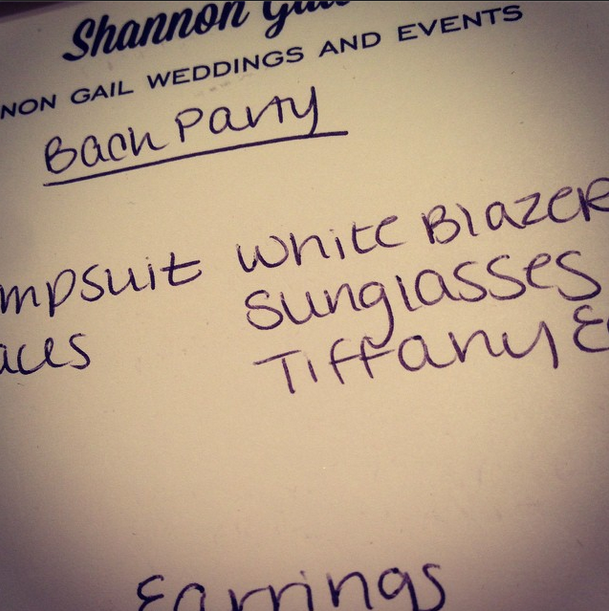 Shannon Gail
NON GAIL WEDDINGS AND EVENTS
Bach Party
mpsuit White Blazer
aces sunglasses
Tiffany Ea
Earrings